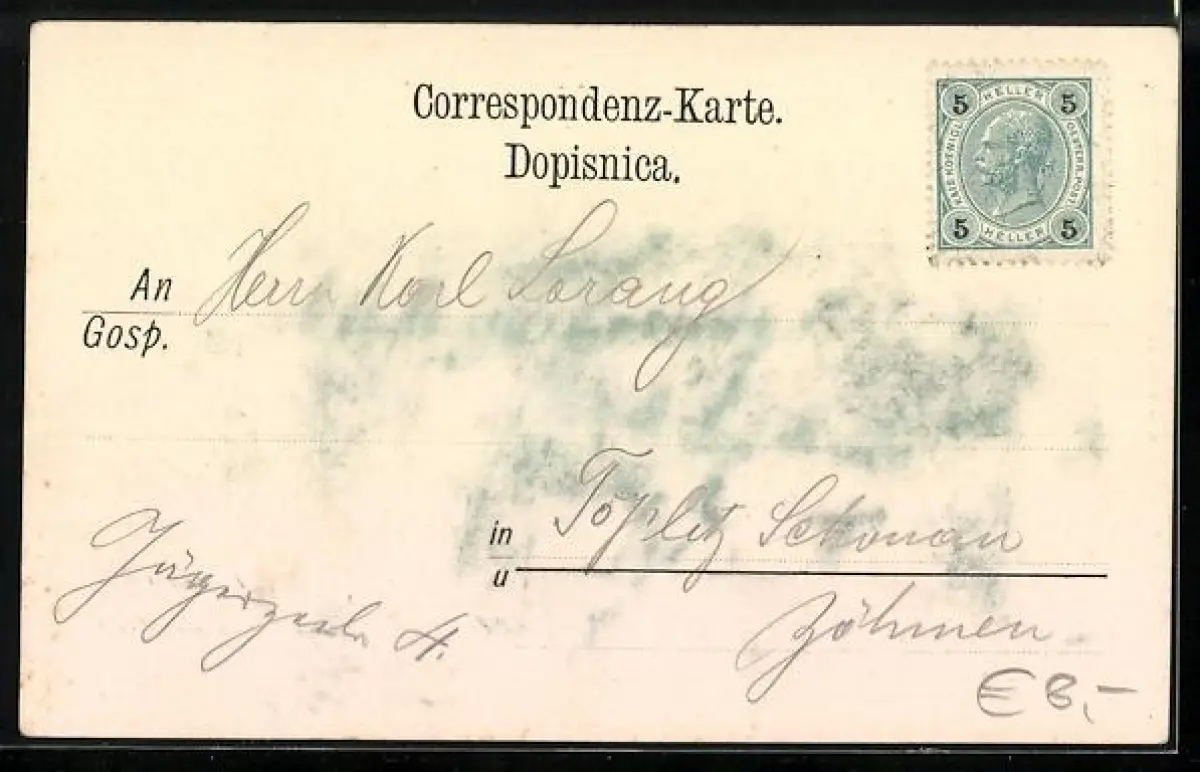 Correspondenz-Karte.
Dopisnica.
5 HELLER 5
KAIS. KOENIGL. OESTERR. POST
5 HELLER 5
An Herrn Karl Lorang
Gosp.
in Töplitz Schönau
u
Jägerzeile 4.
Böhmen
€ 8,-